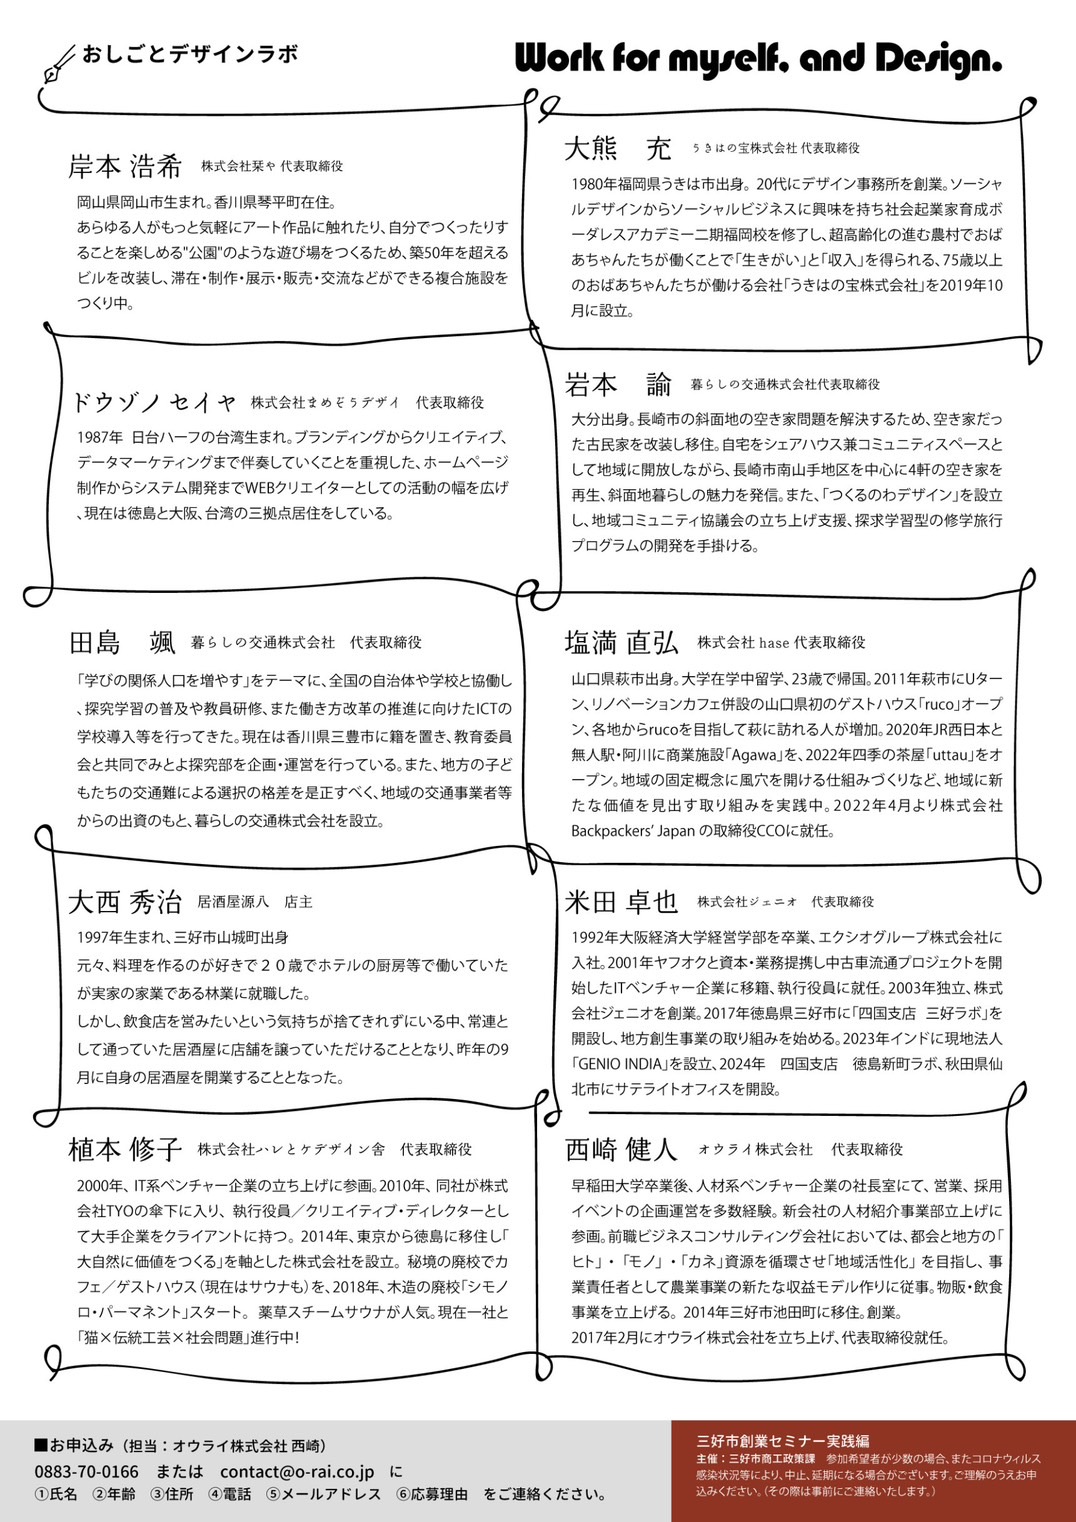 おしごとデザインラボ
Work for myself, and Design.
岸本 浩希 株式会社栞や 代表取締役
岡山県岡山市生まれ。香川県琴平町在住。
あらゆる人がもっと気軽にアート作品に触れたり、自分でつくったりす
ることを楽しめる"公園"のような遊び場をつくるため、築50年を超える
ビルを改装し、滞在・制作・展示・販売・交流などができる複合施設を
つくり中。
大熊　充 うきはの宝株式会社 代表取締役
1980年福岡県うきは市出身。 20代にデザイン事務所を創業。ソーシャ
ルデザインからソーシャルビジネスに興味を持ち社会起業家育成ボ
ーダレスアカデミー二期福岡校を修了し、超高齢化の進む農村でおば
あちゃんたちが働くことで「生きがい」と「収入」を得られる、75歳以上
のおばあちゃんたちが働ける会社「うきはの宝株式会社」を2019年10
月に設立。
ドウゾノ セイヤ 株式会社まめぞうデザイ　代表取締役
1987年 日台ハーフの台湾生まれ。ブランディングからクリエイティブ、
データマーケティングまで伴奏していくことを重視した、ホームページ
制作からシステム開発までWEBクリエイターとしての活動の幅を広げ
、現在は徳島と大阪、台湾の三拠点居住をしている。
岩本　諭 暮らしの交通株式会社代表取締役
大分出身。長崎市の斜面地の空き家問題を解決するため、空き家だっ
た古民家を改装し移住。自宅をシェアハウス兼コミュニティスペースと
して地域に開放しながら、長崎市南山手地区を中心に4軒の空き家を
再生、斜面地暮らしの魅力を発信。また、「つくるのわデザイン」を設立
し、地域コミュニティ協議会の立ち上げ支援、探求学習型の修学旅行
プログラムの開発を手掛ける。
田島　颯 暮らしの交通株式会社　代表取締役
「学びの関係人口を増やす」をテーマに、全国の自治体や学校と協働し
、探究学習の普及や教員研修、また働き方改革の推進に向けたICTの
学校導入等を行ってきた。現在は香川県三豊市に籍を置き、教育委員
会と共同でみとよ探究部を企画・運営を行っている。また、地方の子ど
もたちの交通難による選択の格差を是正すべく、地域の交通事業者等
からの出資のもと、暮らしの交通株式会社を設立。
塩満 直弘 株式会社 hase 代表取締役
山口県萩市出身。大学在学中留学、23歳で帰国。2011年萩市にUター
ン、リノベーションカフェ併設の山口県初のゲストハウス「ruco」オープ
ン、各地からrucoを目指して萩に訪れる人が増加。2020年JR西日本と
無人駅・阿川に商業施設「Agawa」を、2022年四季の茶屋「uttau」をオ
ープン。地域の固定概念に風穴を開ける仕組みづくりなど、地域に新
たな価値を見出す取り組みを実践中。2022年4月より株式会社
Backpackers’ Japan の取締役CCOに就任。
大西 秀治 居酒屋源八　店主
1997年生まれ、三好市山城町出身
元々、料理を作るのが好きで２０歳でホテルの厨房等で働いていた
が実家の家業である林業に就職した。
しかし、飲食店を営みたいという気持ちが捨てきれずにいる中、常連と
して通っていた居酒屋に店舗を譲っていただけることとなり、昨年の9
月に自身の居酒屋を開業することとなった。
米田 卓也 株式会社ジェニオ　代表取締役
1992年大阪経済大学経営学部を卒業、エクシオグループ株式会社に
入社。2001年ヤフオクと資本・業務提携し中古車流通プロジェクトを開
始したITベンチャー企業に移籍、執行役員に就任。2003年独立、株式
会社ジェニオを創業。2017年徳島県三好市に「四国支店　三好ラボ」を
開設し、地方創生事業の取り組みを始める。2023年インドに現地法人
「GENIO INDIA」を設立、2024年　四国支店　徳島新町ラボ、秋田県仙
北市にサテライトオフィスを開設。
植本 修子 株式会社ハレとケデザイン舎　代表取締役
2000年、IT系ベンチャー企業の立ち上げに参画。2010年、同社が株式
会社TYOの傘下に入り、執行役員／クリエイティブ・ディレクターとし
て大手企業をクライアントに持つ。2014年、東京から徳島に移住し「
大自然に価値をつくる」を軸とした株式会社を設立。 秘境の廃校でカ
フェ／ゲストハウス（現在はサウナも）を、2018年、木造の廃校「シモノ
ロ・パーマネント」スタート。 薬草スチームサウナが人気。現在一社と
「猫×伝統工芸×社会問題」進行中!
西崎 健人 オウライ株式会社　代表取締役
早稲田大学卒業後、人材系ベンチャー企業の社長室にて、営業、採用
イベントの企画運営を多数経験。新会社の人材紹介事業部立上げに
参画。前職ビジネスコンサルティング会社においては、都会と地方の「
ヒト」・「モノ」・「カネ」資源を循環させ「地域活性化」を目指し、事
業責任者として農業事業の新たな収益モデル作りに従事。物販・飲食
事業を立上げる。 2014年三好市池田町に移住。創業。
2017年2月にオウライ株式会社を立ち上げ、代表取締役就任。
■お申込み（担当：オウライ株式会社 西崎）
0883-70-0166　または　contact@o-rai.co.jp　に
①氏名　②年齢　③住所　④電話　⑤メールアドレス　⑥応募理由　をご連絡ください。
三好市創業セミナー実践編
主催：三好市商工政策課　参加希望者が少数の場合、またコロナウィルス
感染状況等により、中止、延期になる場合がございます。ご理解のうえお申
込みください。（その際は事前にご連絡いたします。）